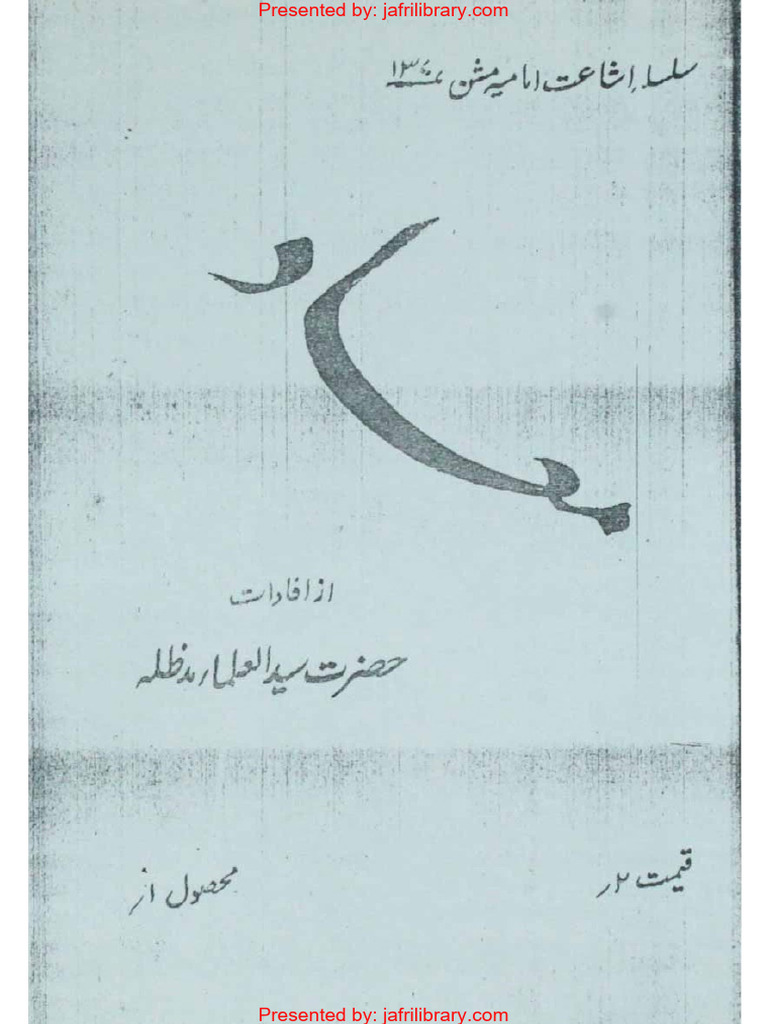 Presented by: jafrilibrary.com
سلسلہ اشاعت امامیہ مشن
از افادات
حضرت سید العلماء مدظلہ
قیمت ۲ر
محصول ار
Presented by: jafrilibrary.com